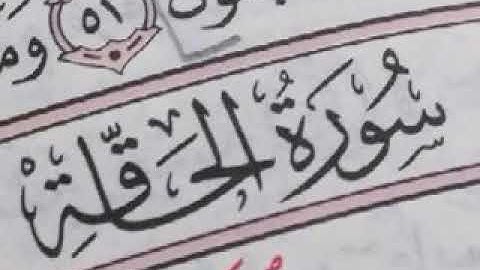 ٥١
سُورَةُ الحَاقَّةِ